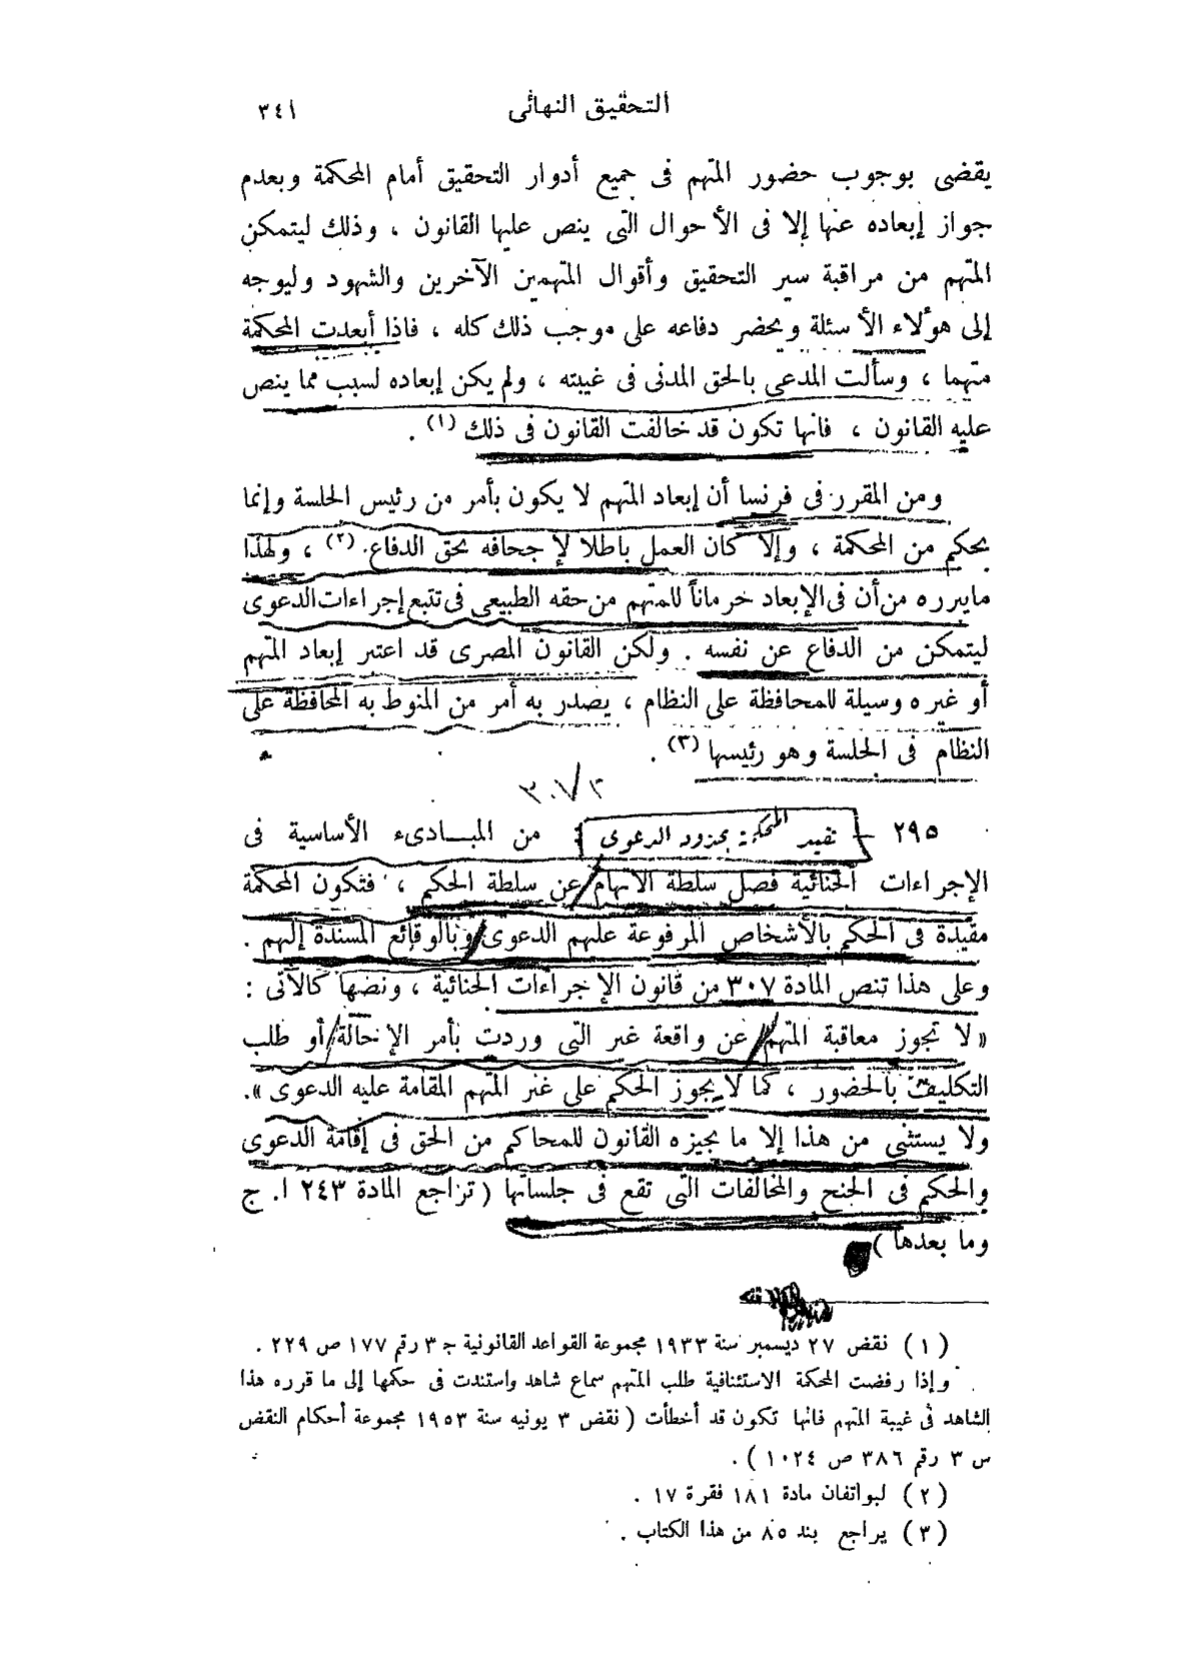 التحقيق النهائى ٣٤١
يقضى بوجوب حضور المتهم فى جميع أدوار التحقيق أمام المحكمة وبعدم
جواز إبعاده عنها إلا فى الأحوال التى ينص عليها القانون ، وذلك ليتمكن
المتهم من مراقبة سير التحقيق وأقوال المتهمين الآخرين والشهود وليوجه
إلى هؤلاء الأسئلة ويحضر دفاعه على موجب ذلك كله ، فاذا أبعدت المحكمة
متهما ، وسألت المدعى بالحق المدنى فى غيبته ، ولم يكن إبعاده لسبب مما ينص
عليه القانون ، فانها تكون قد خالفت القانون فى ذلك (١) .
ومن المقرر فى فرنسا أن إبعاد المتهم لا يكون بأمر من رئيس الجلسة وإنما
بحكم من المحكمة ، وإلا كان العمل باطلا لإجحافه بحق الدفاع (٢) ، ولهذا
مايبرره من أن فى الإبعاد حرماناً للمتهم من حقه الطبيعى فى تتبع إجراءات الدعوى
ليتمكن من الدفاع عن نفسه . ولكن القانون المصرى قد اعتبر إبعاد المتهم
أو غيره وسيلة للمحافظة على النظام ، يصدر به أمر من المنوط به المحافظة على
النظام فى الجلسة وهو رئيسها (٣) .
م/٣٠٧
٢٩٥ - تقيد المحكمة بحدود الدعوى : من المبادىء الأساسية فى
الإجراءات الجنائية فصل سلطة الاتهام عن سلطة الحكم ، فتكون المحكمة
مقيدة فى الحكم بالأشخاص المرفوعة عليهم الدعوى وبالوقائع المسندة إليهم .
وعلى هذا تنص المادة ٣٠٧ من قانون الإجراءات الجنائية ، ونصها كالآتى :
« لا تجوز معاقبة المتهم عن واقعة غير التى وردت بأمر الإحالة أو طلب
التكليف بالحضور ، كما لا يجوز الحكم على غير المتهم المقامة عليه الدعوى ».
ولا يستثنى من هذا إلا ما يجيزه القانون للمحاكم من الحق فى إقامة الدعوى
والحكم فى الجنح والمخالفات التى تقع فى جلساتها ( تراجع المادة ٢٤٣ ا. ج
وما بعدها )
(١) نقض ٢٧ ديسمبر سنة ١٩٣٣ مجموعة القواعد القانونية ج ٣ رقم ١٧٧ ص ٢٢٩ .
وإذا رفضت المحكمة الاستئنافية طلب المتهم سماع شاهد واستندت فى حكمها إلى ما قرره هذا
الشاهد فى غيبة المتهم فانها تكون قد أخطأت ( نقض ٣ يونيه سنة ١٩٥٣ مجموعة أحكام النقض
س ٣ رقم ٣٨٦ ص ١٠٢٤ ) .
(٢) لبواتفان مادة ١٨١ فقرة ١٧ .
(٣) يراجع بند ٨٥ من هذا الكتاب .